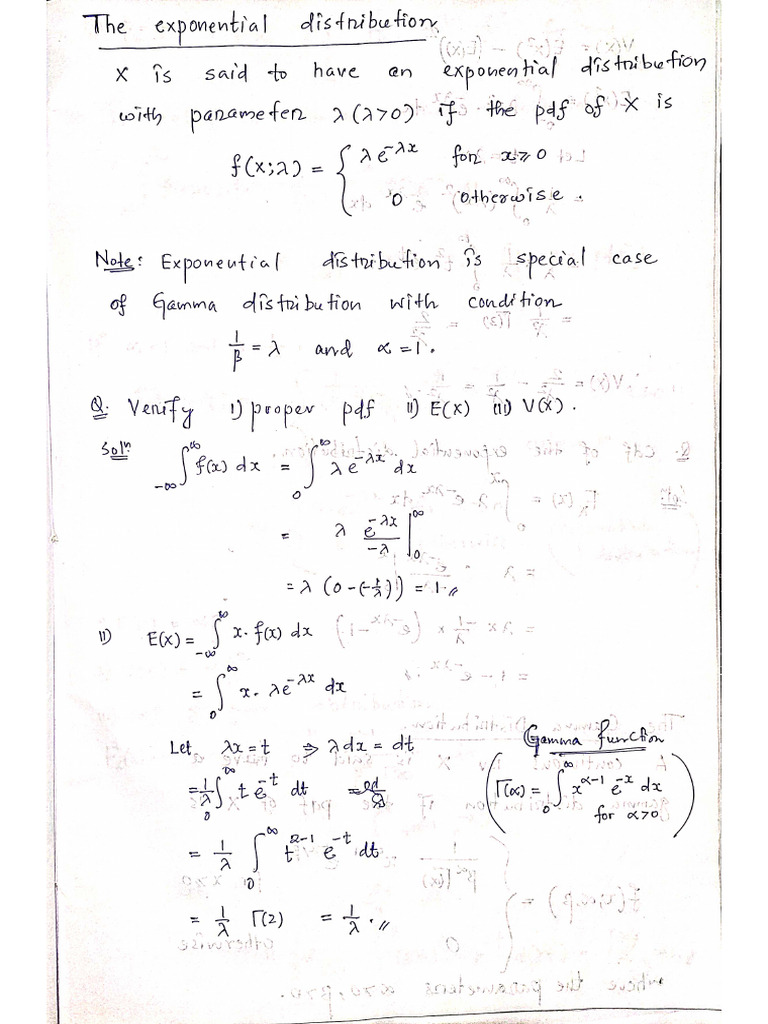 The exponential distribution
X is said to have an exponential distribution
with parameter λ (λ>0) if the pdf of X is
f(x;λ) = { λe^{-λx} for x≥0
0 otherwise.
Note: Exponential distribution is special case
of Gamma distribution with condition
1/β = λ and α=1.
Q. Verify i) proper pdf ii) E(X) iii) V(X).
Solⁿ ∫_{-∞}^{∞} f(x) dx = ∫_0^∞ λe^{-λx} dx
= λ e^{-λx}/-λ |_0^∞
= λ (0-(-1/λ)) = 1.
ii) E(X) = ∫_{-∞}^{∞} x. f(x) dx
= ∫_0^∞ x. λe^{-λx} dx
Let λx=t ⇒ λdx = dt
= 1/λ ∫_0^∞ t e^{-t} dt
= 1/λ ∫_0^∞ t^{2-1} e^{-t} dt
= 1/λ Γ(2) = 1/λ.
Gamma function
( Γ(α) = ∫_0^∞ x^{α-1} e^{-x} dx
for α>0 )